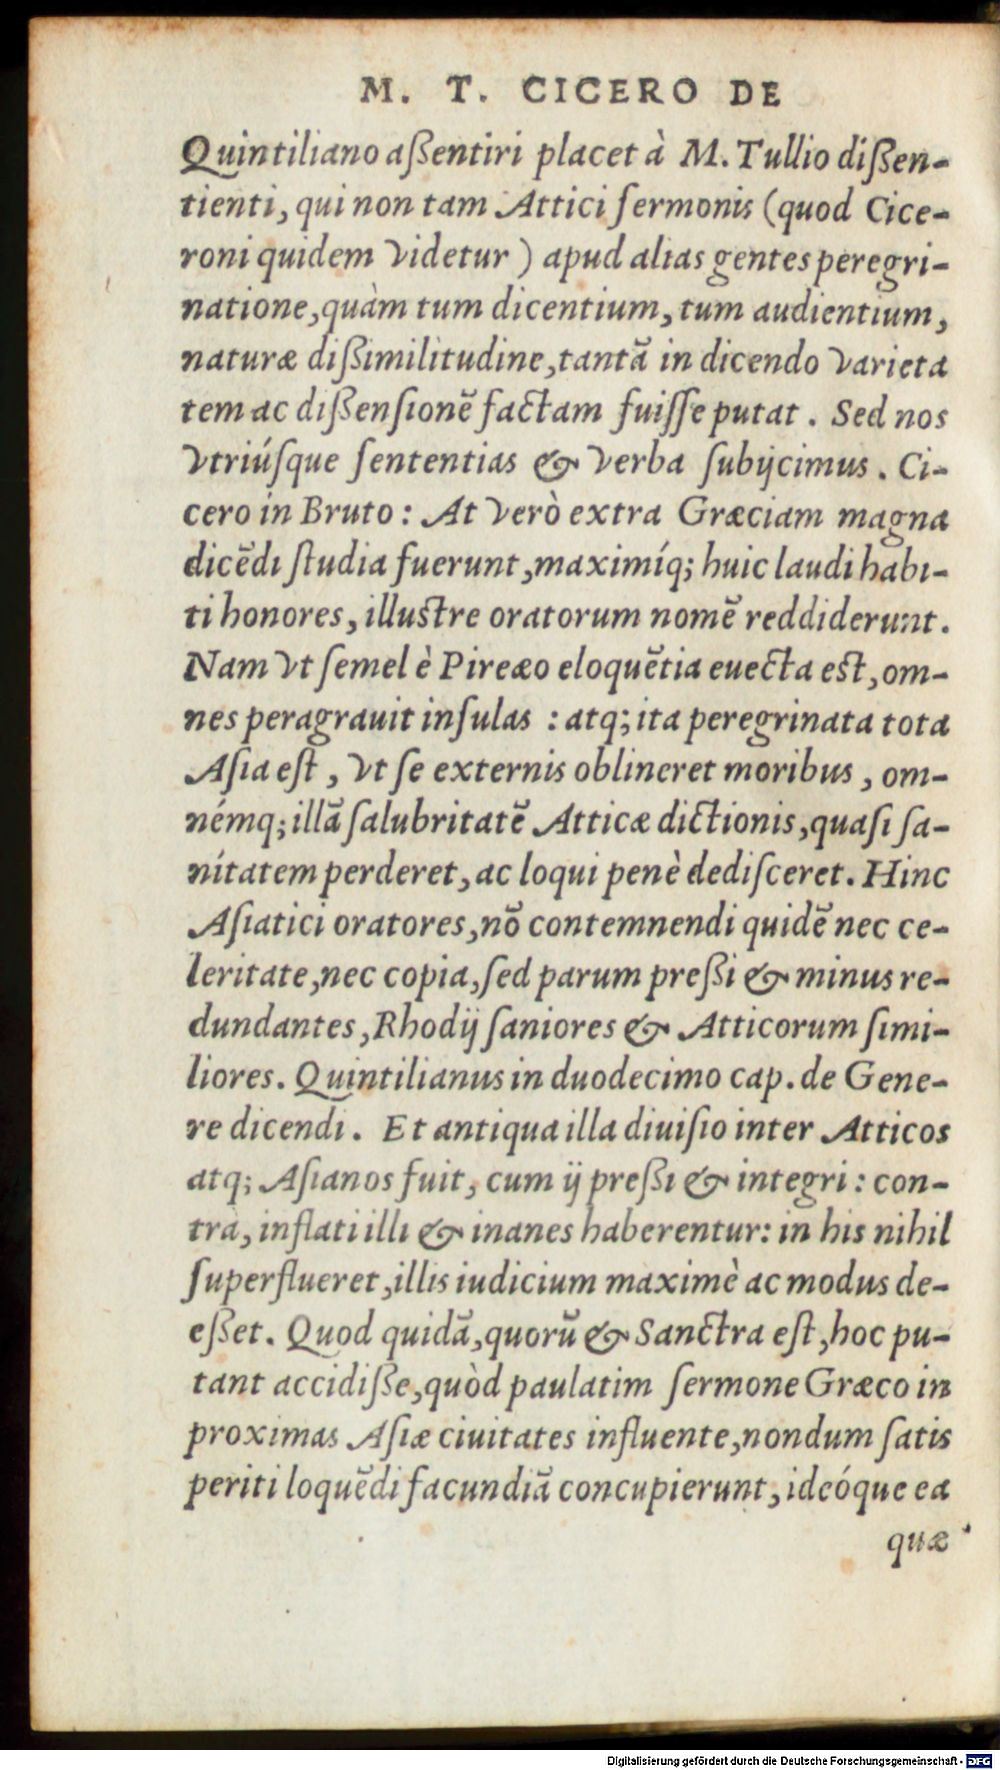 M. T. CICERO DE
Quintiliano aßentiri placet à M. Tullio dißen-
tienti, qui non tam Attici ſermonis (quod Cice-
roni quidem videtur) apud alias gentes peregri-
natione, quàm tum dicentium, tum audientium,
naturæ dißimilitudine, tantā in dicendo varieta
tem ac dißenſionē factam fuiſſe putat. Sed nos
vtriúſque ſententias & verba ſubijcimus. Ci-
cero in Bruto: At verò extra Græciam magna
dicēdi ſtudia fuerunt, maximíq; huic laudi habi-
ti honores, illuſtre oratorum nomē reddiderunt.
Nam vt ſemel è Pireæo eloquētia euecta eſt, om-
nes peragrauit inſulas : atq; ita peregrinata tota
Aſia eſt, vt ſe externis oblineret moribus, om-
némq; illā ſalubritatē Atticæ dictionis, quaſi ſa-
nítatem perderet, ac loqui penè dediſceret. Hinc
Aſiatici oratores, nō contemnendi quidē nec ce-
leritate, nec copia, ſed parum preßi & minus re-
dundantes, Rhodij ſaniores & Atticorum ſimi-
liores. Quintilianus in duodecimo cap. de Gene-
re dicendi. Et antiqua illa diuiſio inter Atticos
atq; Aſianos fuit, cum ij preßi & integri: con-
tra, inflati illi & inanes haberentur: in his nihil
ſuperflueret, illis iudicium maximè ac modus de-
eßet. Quod quidā, quorū & Sanctra eſt, hoc pu-
tant accidiße, quòd paulatim ſermone Græco in
proximas Aſiæ ciuitates influente, nondum ſatis
periti loquēdi facundiā concupierunt, ideóque ea
quæ
Digitalisierung gefördert durch die Deutsche Forschungsgemeinschaft - DFG